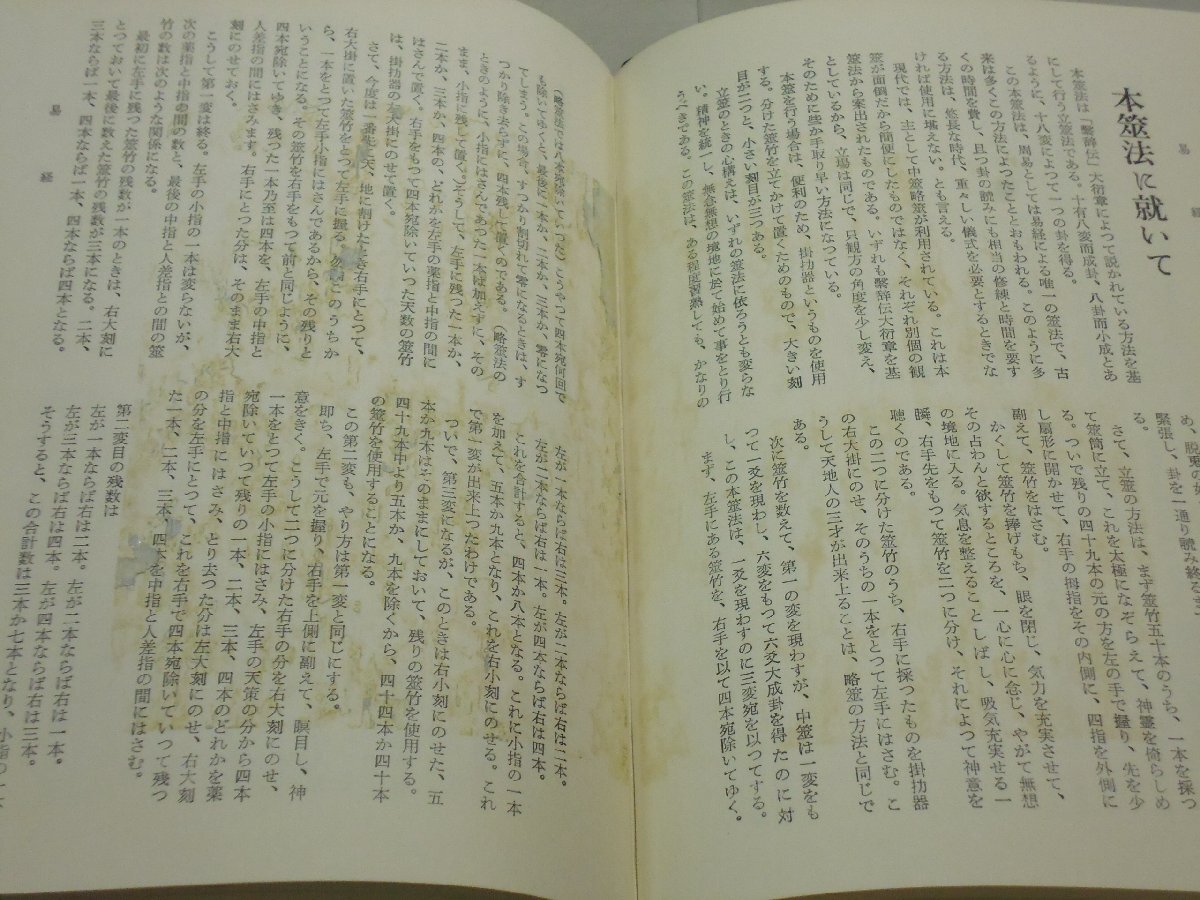 易経
本筮法に就いて
本筮法は「繫辞伝」大衍章によって説かれている方法を基
にして行う立筮法である。十有八変而成卦、八卦而小成とあ
るように、十八変によつて一つの卦を得る。
この本筮法は、周易としては易経による唯一の筮法で、古
来は多くこの方法によつたこととおもわれる。このように多
くの時間を費し、且つ卦の読みにも相当の修練と時間を要す
る方法は、悠長な時代、重々しい儀式を必要とするときでな
ければ使用に堪えない。とも言える。
現代では、主として中筮略筮が利用されている。これは本
筮が面倒だから簡便にしたものではなく、それぞれ別個の観
筮法から案出されたものである。いずれも繫辞伝大衍章を基
としているから、立場は同じで、只観方の角度を少し変え、
そのために些か手取り早い方法になつている。
本筮を行う場合は、便利のため、掛扐器というものを使用
する。分けた筮竹を立てかけて置くためのもので、大きい刻
目が二つと、小さい刻目が三つある。
立筮のときの心構えは、いずれの筮法に依ろうとも変らな
い。精神を統一し、無念無想の境地に於て始めて事をとり行
うべきである。この筮法は、ある程度習熟しても、かなりの
め、脱兎の
緊張し、卦を一通り読み終るま
る。
さて、立筮の方法は、まず筮竹五十本のうち、一本を採つ
て筮筒に立て、これを太極になぞらえて、神霊を倚らしめ
る。ついで残りの四十九本の元の方を左の手で握り、先を少
し扇形に開かせて、右手の拇指をその内側に、四指を外側に
副えて、筮竹をはさむ。
かくして筮竹を捧げもち、眼を閉じ、気力を充実させて、
その占わんと欲するところを、一心に心に念じ、やがて無想
の境地に入る。気息を整えることしばし、吸気充実せる一
瞬、右手先をもつて筮竹を二つに分け、それによつて神意を
聴くのである。
この二つに分けた筮竹のうち、右手に採つたものを掛扐器
の右大掛にのせ、そのうちの一本をとつて左手にはさむ。こ
うして天地人の三才が出来上ることは、略筮の方法と同じで
ある。
次に筮竹を数えて、第一の変を現わすが、中筮は一変をも
つて一爻を現わし、六変をもつて六爻大成卦を得たのに対
し、この本筮法は、一爻を現わすのに三変宛を以つてする。
まず、左手にある筮竹を、右手を以て四本宛除いてゆく。
(略筮法では八本宛除いていつた)こうやつて四本宛何回で
も除いてゆくと、最後に一本か、二本か、三本か、零になつ
てしまう。この場合、すつかり割切れて零になるときは、す
つかり除き去らずに、四本残して置くのである。(略筮法の
ときのように、小指にはさんであつた一本は加えずに、その
まま、小指に残して置く。)そうして、左手に残つた一本か、
二本か、三本か、四本の、どれかを左手の薬指と中指の間に
はさんで置く。右手をもつて四本宛除いていつた天数の筮竹
は、掛扐器の左大掛にのせて置く。
さて、今度は一番先に天、地に割けたとき右手にとつて、
右大掛に置いた筮竹をとつて左手に握る。勿論このうちか
ら、一本をとつて左手小指にはさんであるから、その残りと
いうことになる。その筮竹を右手をもつて前と同じように、
四本宛除いてゆき、残つた一本乃至は四本を、左手の中指と
人差指の間にはさみます。右手にとつた分は、そのまま右大
刻にのせておく。
こうして第一変は終る。左手の小指の一本は変らないが、
次の薬指と中指の間の数と、最後の中指と人差指との間の筮
竹の数は次のような関係になる。
最初に左手に残つた筮竹の残数が一本のときは、右大刻に
とつておいて最後に数えた筮竹の残数が三本になる。二本、
三本ならば一本、四本ならば一本、四本ならば四本となる。
易経
左が一本ならば右は三本。左が二本ならば右は二本。
左が三本ならば右は一本。左が四本ならば右は四本。
これを合計すると、四本か八本となる。これに小指の一本
を加えて、五本か九本となり、これを右小刻にのせる。これ
で第一変が出来上つたわけである。
ついで、第三変になるが、このときは右小刻にのせた、五
本か九本はそのままにしておいて、残りの筮竹を使用する。
四十九本中より五本か、九本を除くから、四十四本か四十本
の筮竹を使用することになる。
この第二変も、やり方は第一変と同じにする。
即ち、左手で元を握り、右手を上側に副えて、瞑目し、神
意をきく。こうして二つに分けた右手の分を右大刻にのせ、
一本をとつて左手の小指にはさみ、左手の天策の分から四本
宛除いていつて残りの一本、二本、三本、四本のどれかを薬
指と中指にはさみ、とり去つた分は左大刻にのせ、右大刻
の分を左手にとつて、これを右手で四本宛除いていつて残つ
た一本、二本、三本、四本を中指と人差指の間にはさむ。
第二変目の残数は
左が一本ならば右は二本。左が二本ならば右は一本。
左が三本ならば右は四本。左が四本ならば右は三本。
そうすると、この合計数は三本か七本となり、小指の一本